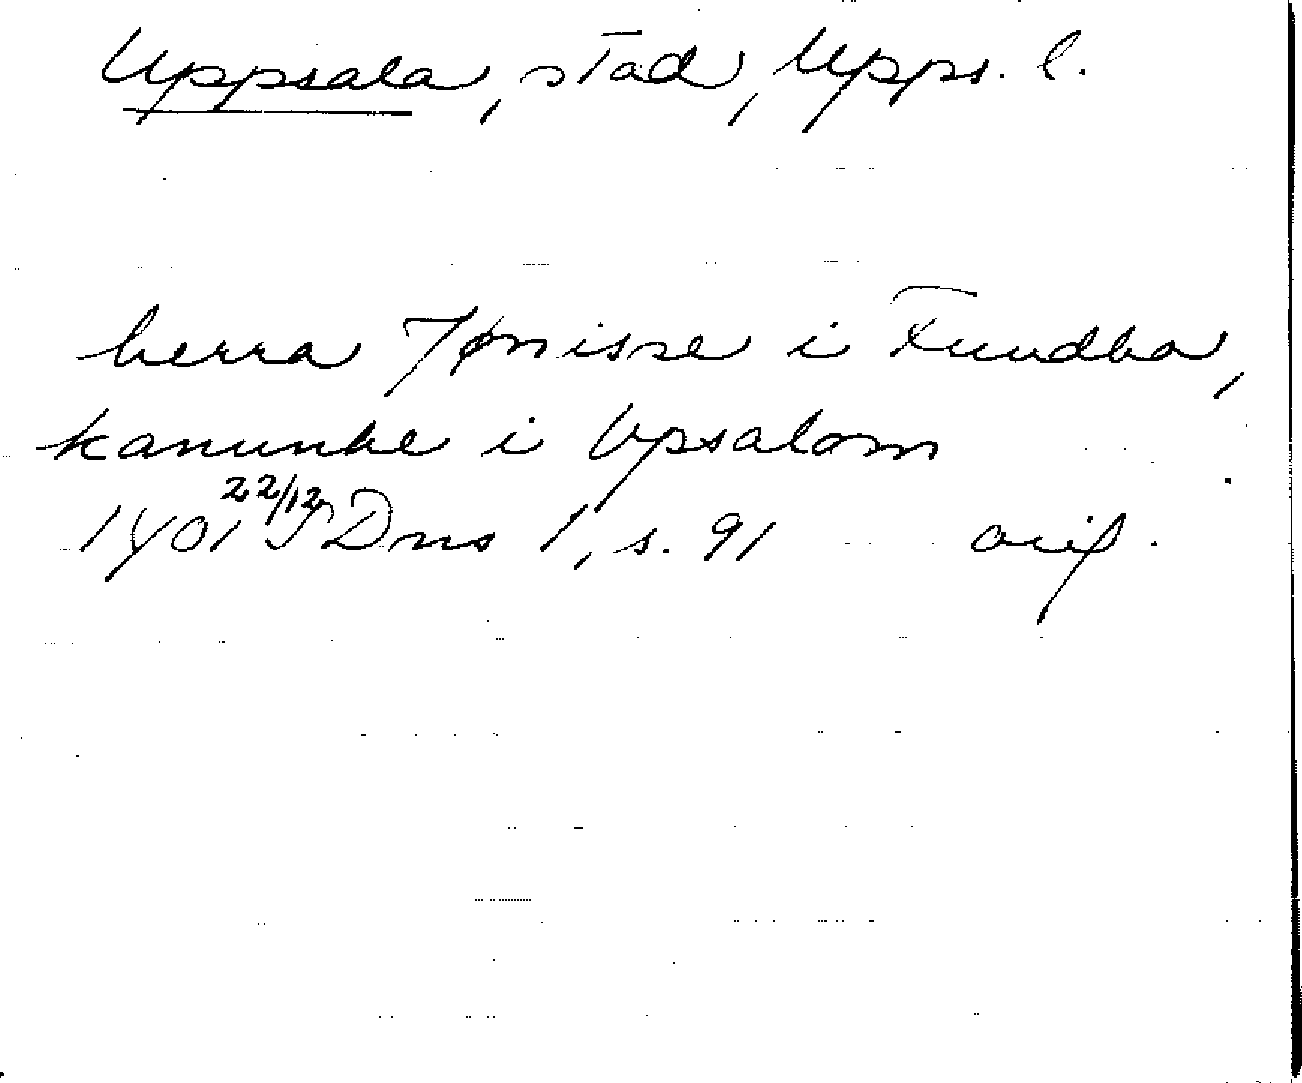 Uppsala, stad, Upps. l.
herra Jønisse i Fundbo,
kanunke i Vpsalom
1401 22/12 SDns 1, s. 91 orig.